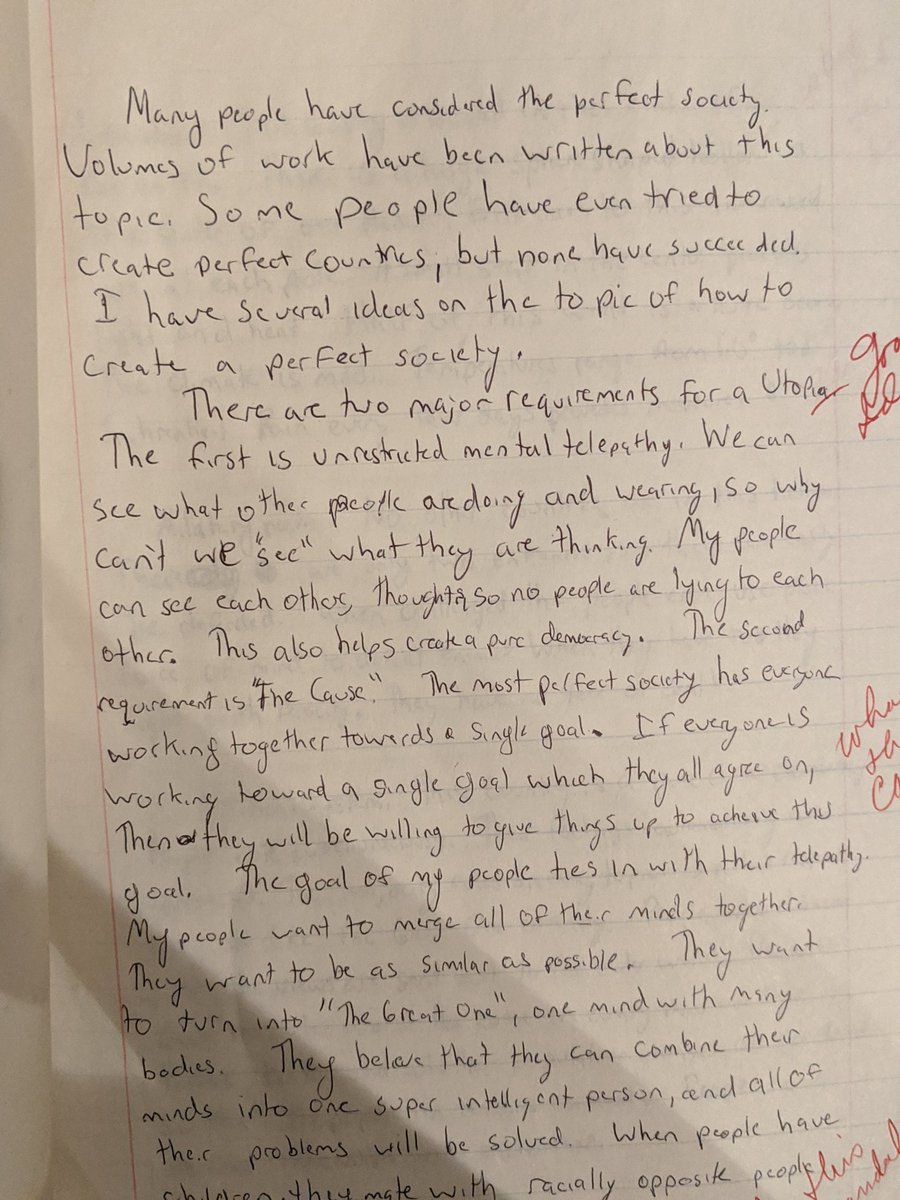 Many people have considered the perfect society.
Volumes of work have been written about this
topic. Some people have even tried to
create perfect countries, but none have succeeded.
I have several ideas on the topic of how to
create a perfect society.
There are two major requirements for a Utopia
The first is unrestricted mental telepathy. We can
see what other people are doing and wearing, so why
can't we "see" what they are thinking. My people
can see each others thoughts, so no people are lying to each
other. This also helps create a pure democracy. The second
requirement is "The Cause". The most perfect society has everyone
working together towards a single goal. If everyone is
working toward a single goal which they all agree on,
Then they will be willing to give things up to acheive this
goal. The goal of my people ties in with their telepathy.
My people want to merge all of their minds together.
They want to be as similar as possible. They want
to turn into "The Great One", one mind with many
bodies. They beleve that they can combine their
minds into one super intelligent person, and all of
their problems will be solved. When people have
children, they mate with racially opposite people
this